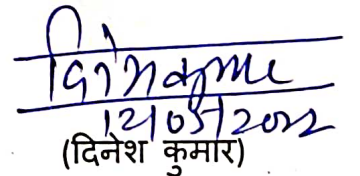 दिनेश कुमार
12/05/2022
(दिनेश कुमार)